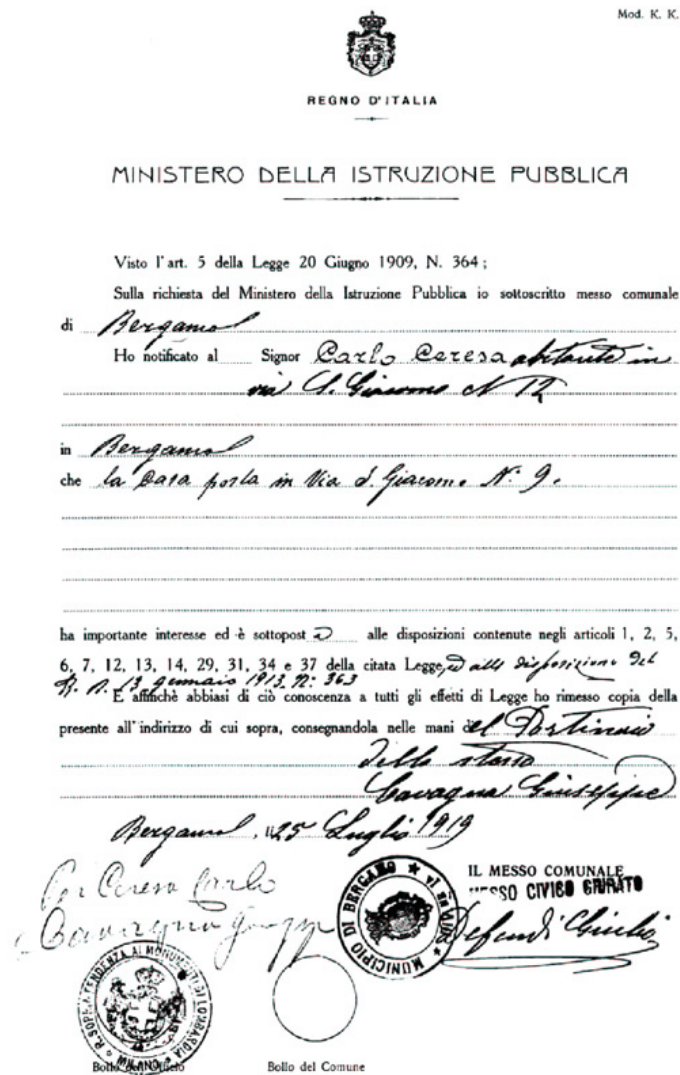 Mod. K. K.
REGNO D'ITALIA
MINISTERO DELLA ISTRUZIONE PUBBLICA
Visto l'art. 5 della Legge 20 Giugno 1909, N. 364;
Sulla richiesta del Ministero della Istruzione Pubblica io sottoscritto messo comunale
di Bergamo
Ho notificato al Signor Carlo Ceresa abitante in
via S. Giacomo N 12
in Bergamo
che la Casa posta in Via S. Giacomo N. 9.
ha importante interesse ed è sottopost a alle disposizioni contenute negli articoli 1, 2, 5,
6, 7, 12, 13, 14, 29, 31, 34 e 37 della citata Legge, ed alle disposizione del
13 gennaio 1913. N: 363
E affinchè abbiasi di ciò conoscenza a tutti gli effetti di Legge ho rimesso copia della
presente all'indirizzo di cui sopra, consegnandola nelle mani del Portinaio
dello stesso
Cavagna Giuseppe
Bergamo, li 25 Luglio 1919
Ceresa Carlo
Cavagna
IL MESSO COMUNALE
MESSO CIVICO GIURATO
MUNICIPIO DI BERGAMO
Giulio
R. SOPRAINTENDENZA AI MONUMENTI DI LOMBARDIA
MILANO
Bollo dell'Ufficio
Bollo del Comune